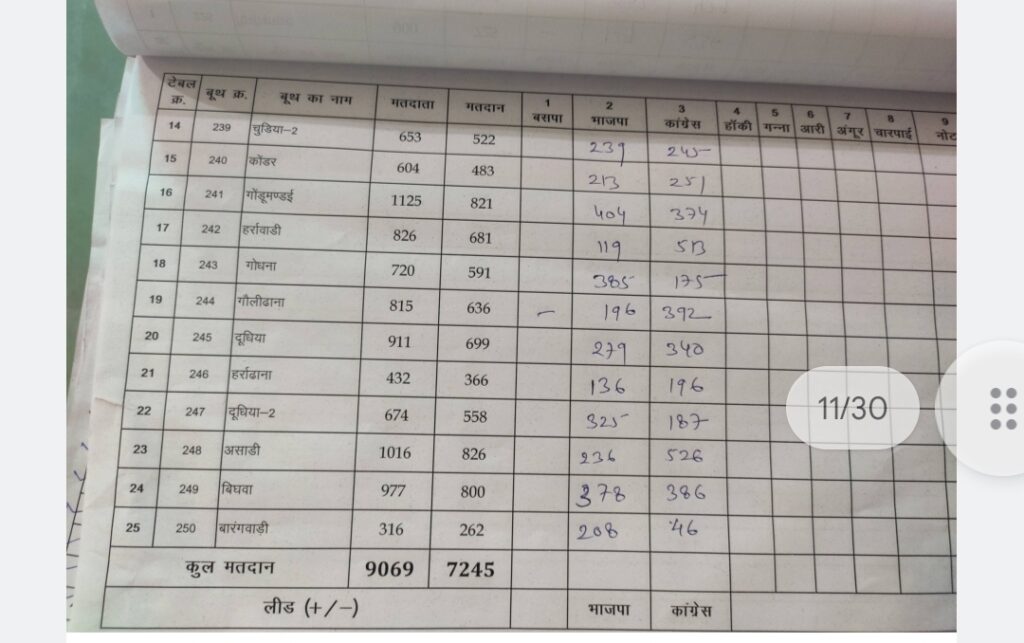 टेबल क्र. बूथ क्र. बूथ का नाम मतदाता मतदान 1 बसपा 2 भाजपा 3 कांग्रेस 4 हॉकी 5 गन्ना 6 आरी 7 अंगूर 8 चारपाई 9 नोट
14 239 चुडिया-2 653 522 239 245
15 240 कोंडर 604 483 213 251
16 241 गोंडूमण्डई 1125 821 404 374
17 242 हर्रावाडी 826 681 119 513
18 243 गोधना 720 591 385 175
19 244 गौलीढाना 815 636 – 196 392
20 245 दूधिया 911 699 279 340
21 246 हर्राढाना 432 366 136 196
22 247 दूधिया-2 674 558 325 187
23 248 असाडी 1016 826 236 526
24 249 बिघवा 977 800 378 386
25 250 बारंगवाड़ी 316 262 208 46
कुल मतदान 9069 7245
लीड (+/-) भाजपा कांग्रेस
11/30